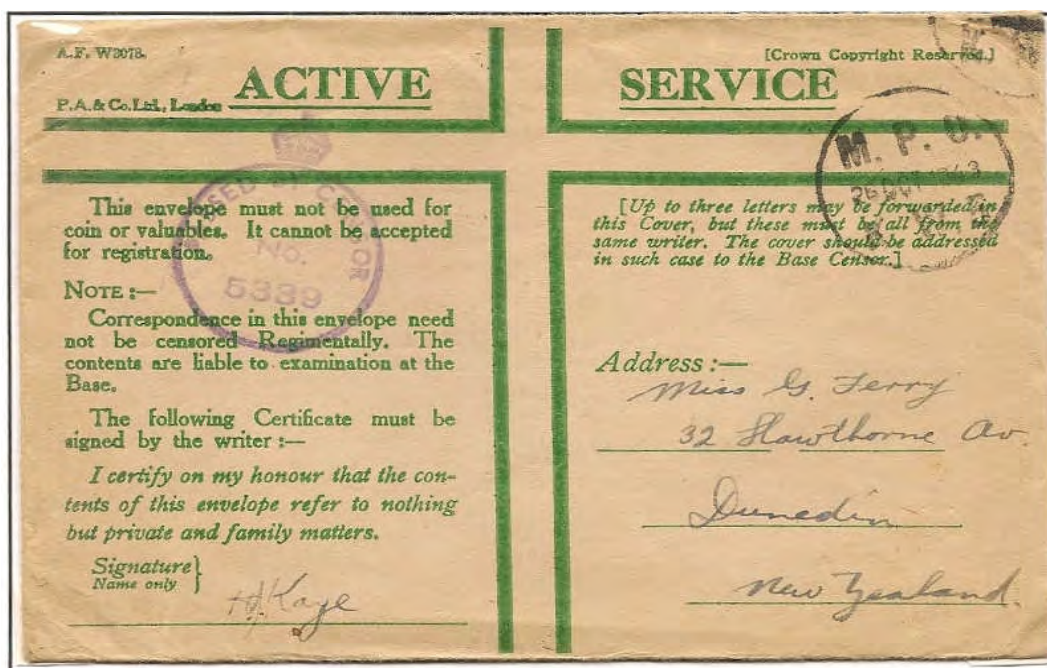 A.F. W3078.
[Crown Copyright Reserved.]
ACTIVE SERVICE
P.A. & Co. Ltd., London
M. P. U.
26 OCT 1943
PASSED BY CENSOR
No.
5339
This envelope must not be used for
coin or valuables. It cannot be accepted
for registration.
NOTE :—
Correspondence in this envelope need
not be censored Regimentally. The
contents are liable to examination at the
Base.
The following Certificate must be
signed by the writer :—
I certify on my honour that the con-
tents of this envelope refer to nothing
but private and family matters.
Signature }
Name only
H Kaye
[Up to three letters may be forwarded in
this Cover, but these must be all from the
same writer. The cover should be addressed
in such case to the Base Censor.]
Address :—
Miss G. Ferry
32 Hawthorne Av.
Dunedin
New Zealand.